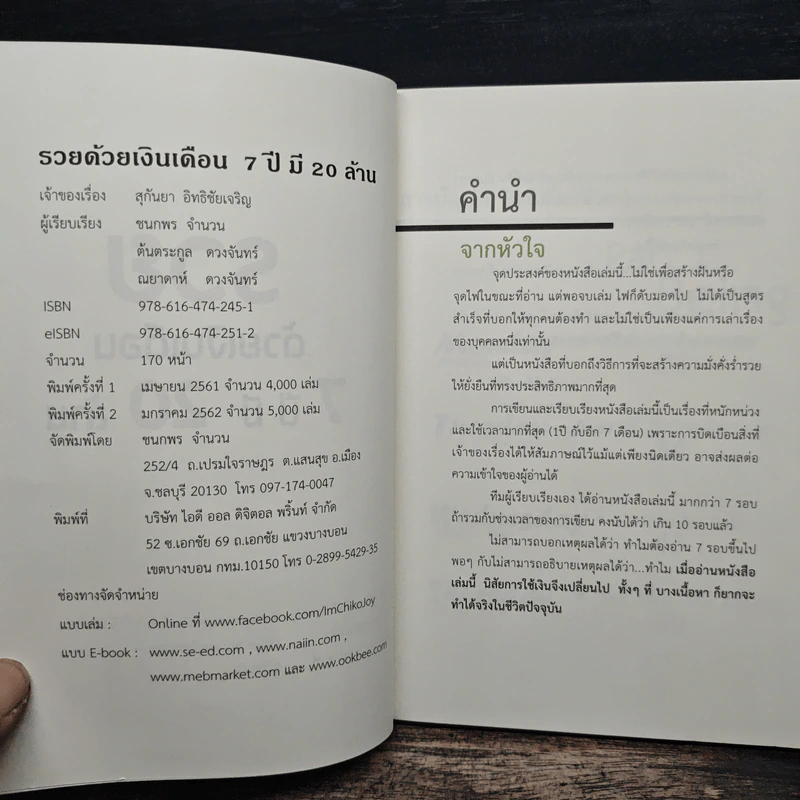 รวยด้วยเงินเดือน 7 ปี มี 20 ล้าน
เจ้าของเรื่อง สุกันยา อิทธิชัยเจริญ
ผู้เรียบเรียง ชนกพร จำนวน
ต้นตระกูล ดวงจันทร์
ณยาดาห์ ดวงจันทร์
ISBN 978-616-474-245-1
eISBN 978-616-474-251-2
จำนวน 170 หน้า
พิมพ์ครั้งที่ 1 เมษายน 2561 จำนวน 4,000 เล่ม
พิมพ์ครั้งที่ 2 มกราคม 2562 จำนวน 5,000 เล่ม
จัดพิมพ์โดย ชนกพร จำนวน
252/4 ถ.เปรมใจราษฎร ต.แสนสุข อ.เมือง
จ.ชลบุรี 20130 โทร 097-174-0047
พิมพ์ที่ บริษัท ไอดี ออล ดิจิตอล พริ้นท์ จำกัด
52 ซ.เอกชัย 69 ถ.เอกชัย แขวงบางบอน
เขตบางบอน กทม.10150 โทร 0-2899-5429-35
ช่องทางจัดจำหน่าย
แบบเล่ม : Online ที่ www.facebook.com/ImChikoJoy
แบบ E-book : www.se-ed.com , www.naiin.com ,
www.mebmarket.com และ www.ookbee.com
คำนำ
จากหัวใจ
จุดประสงค์ของหนังสือเล่มนี้...ไม่ใช่เพื่อสร้างฝันหรือ
จุดไฟในขณะที่อ่าน แต่พอจบเล่ม ไฟก็ดับมอดไป ไม่ได้เป็นสูตร
สำเร็จที่บอกให้ทุกคนต้องทำ และไม่ใช่เป็นเพียงแค่การเล่าเรื่อง
ของบุคคลหนึ่งเท่านั้น
แต่เป็นหนังสือที่บอกถึงวิธีการที่จะสร้างความมั่งคั่งร่ำรวย
ให้ยั่งยืนที่ทรงประสิทธิภาพมากที่สุด
การเขียนและเรียบเรียงหนังสือเล่มนี้เป็นเรื่องที่หนักหน่วง
และใช้เวลามากที่สุด (1ปี กับอีก 7 เดือน) เพราะการบิดเบือนสิ่งที่
เจ้าของเรื่องได้ให้สัมภาษณ์ไว้แม้แต่เพียงนิดเดียว อาจส่งผลต่อ
ความเข้าใจของผู้อ่านได้
ทีมผู้เรียบเรียงเอง ได้อ่านหนังสือเล่มนี้ มากกว่า 7 รอบ
ถ้ารวมกับช่วงเวลาของการเขียน คงนับได้ว่า เกิน 10 รอบแล้ว
ไม่สามารถบอกเหตุผลได้ว่า ทำไมต้องอ่าน 7 รอบขึ้นไป
พอๆ กับไม่สามารถอธิบายเหตุผลได้ว่า...ทำไม เมื่ออ่านหนังสือ
เล่มนี้ นิสัยการใช้เงินจึงเปลี่ยนไป ทั้งๆ ที่ บางเนื้อหา ก็ยากจะ
ทำได้จริงในชีวิตปัจจุบัน